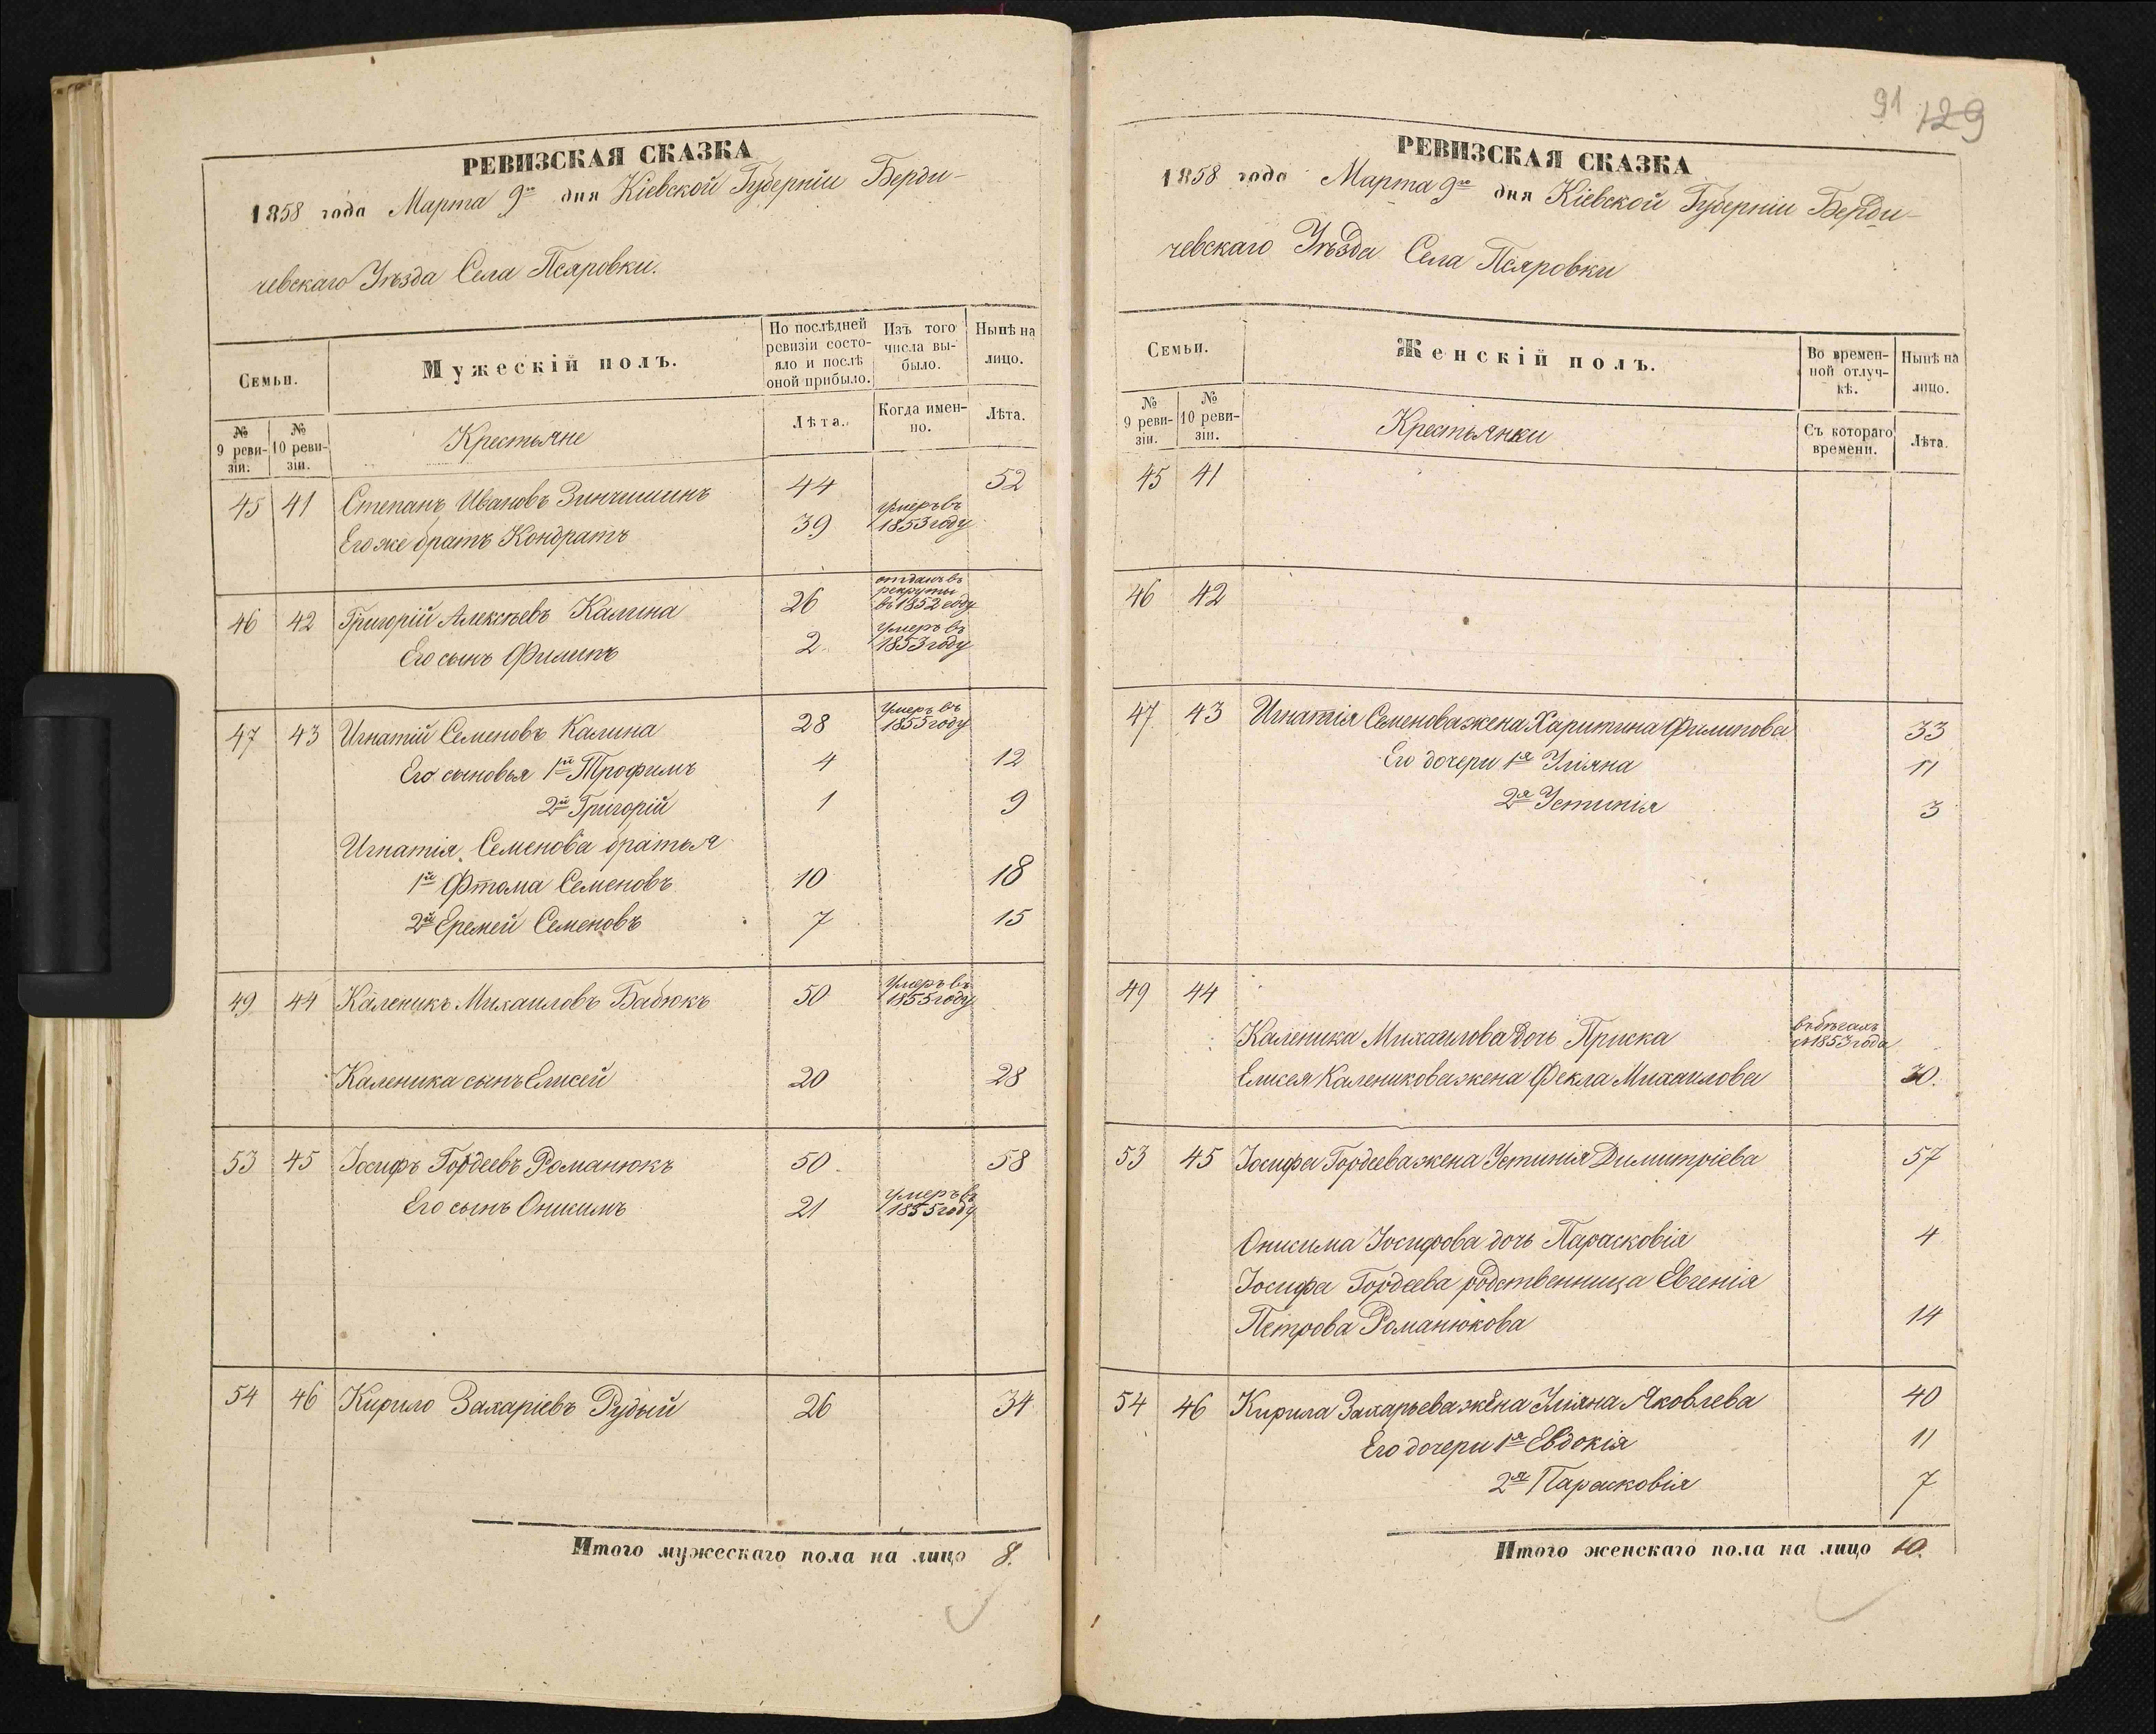 РЕВИЗСКАЯ СКАЗКА
1858 года Марта 9го дня Кіевской Губерніи Берди-
чевскаго Уѣзда Села Псяровки.
Семьи.
Мужескій полъ.
По послѣдней ревизіи состояло и послѣ оной прибыло.
Изъ того числа выбыло.
Нынѣ на лицо.
№ 9 ревизіи.
№ 10 ревизіи.
Крестьяне
Лѣта.
Когда именно.
Лѣта.
45 41 Степанъ Ивановъ Зинчишинъ 44 52
Его же братъ Кондратъ 39 умеръ въ 1853 году
46 42 Григорій Алексѣевъ Калина 26 отданъ въ рекруты въ 1852 году
Его сынъ Филипъ 2 умеръ въ 1853 году
47 43 Игнатій Семеновъ Калина 28 Умеръ въ 1855 году
Его сыновья 1й Трофимъ 4 12
2й Григорій 1 9
Игнатія Семенова братья
1й Фтома Семеновъ 10 18
2й Еремей Семеновъ 7 15
49 44 Каленикъ Михаиловъ Бабюкъ 50 Умеръ въ 1855 году
Каленика сынъ Елисей 20 28
53 45 Іосифъ Гордеевъ Романюкъ 50 58
Его сынъ Онисимъ 21 умеръ въ 1855 году
54 46 Кирило Захаріевъ Рудый 26 34
Итого мужескаго пола на лицо 8.
91 129
РЕВИЗСКАЯ СКАЗКА
1858 года Марта 9го дня Кіевской Губерніи Берди-
чевскаго Уѣзда Села Псяровки
Семьи.
Женскій полъ.
Во временной отлучкѣ.
Нынѣ на лицо.
№ 9 ревизіи.
№ 10 ревизіи.
Крестьянки
Съ котораго времени.
Лѣта.
45 41
46 42
47 43 Игнатія Семенова жена Харитина Филипова 33
Его дочери 1я Уліяна 11
2я Устинія 3
49 44
Каленика Михаилова дочь Приска въ бѣгахъ съ 1853 года
Елисея Каленикова жена Фекла Михаилова 30.
53 45 Іосифа Гордеева жена Устинія Димитріева 57
Онисима Іосифова дочь Парасковія 4
Іосифа Гордеева родственница Евгенія
Петрова Романюкова 14
54 46 Кирила Захарьева жена Уліяна Яковлева 40
Его дочери 1я Евдокія 11
2я Парасковія 7
Итого женскаго пола на лицо 10.